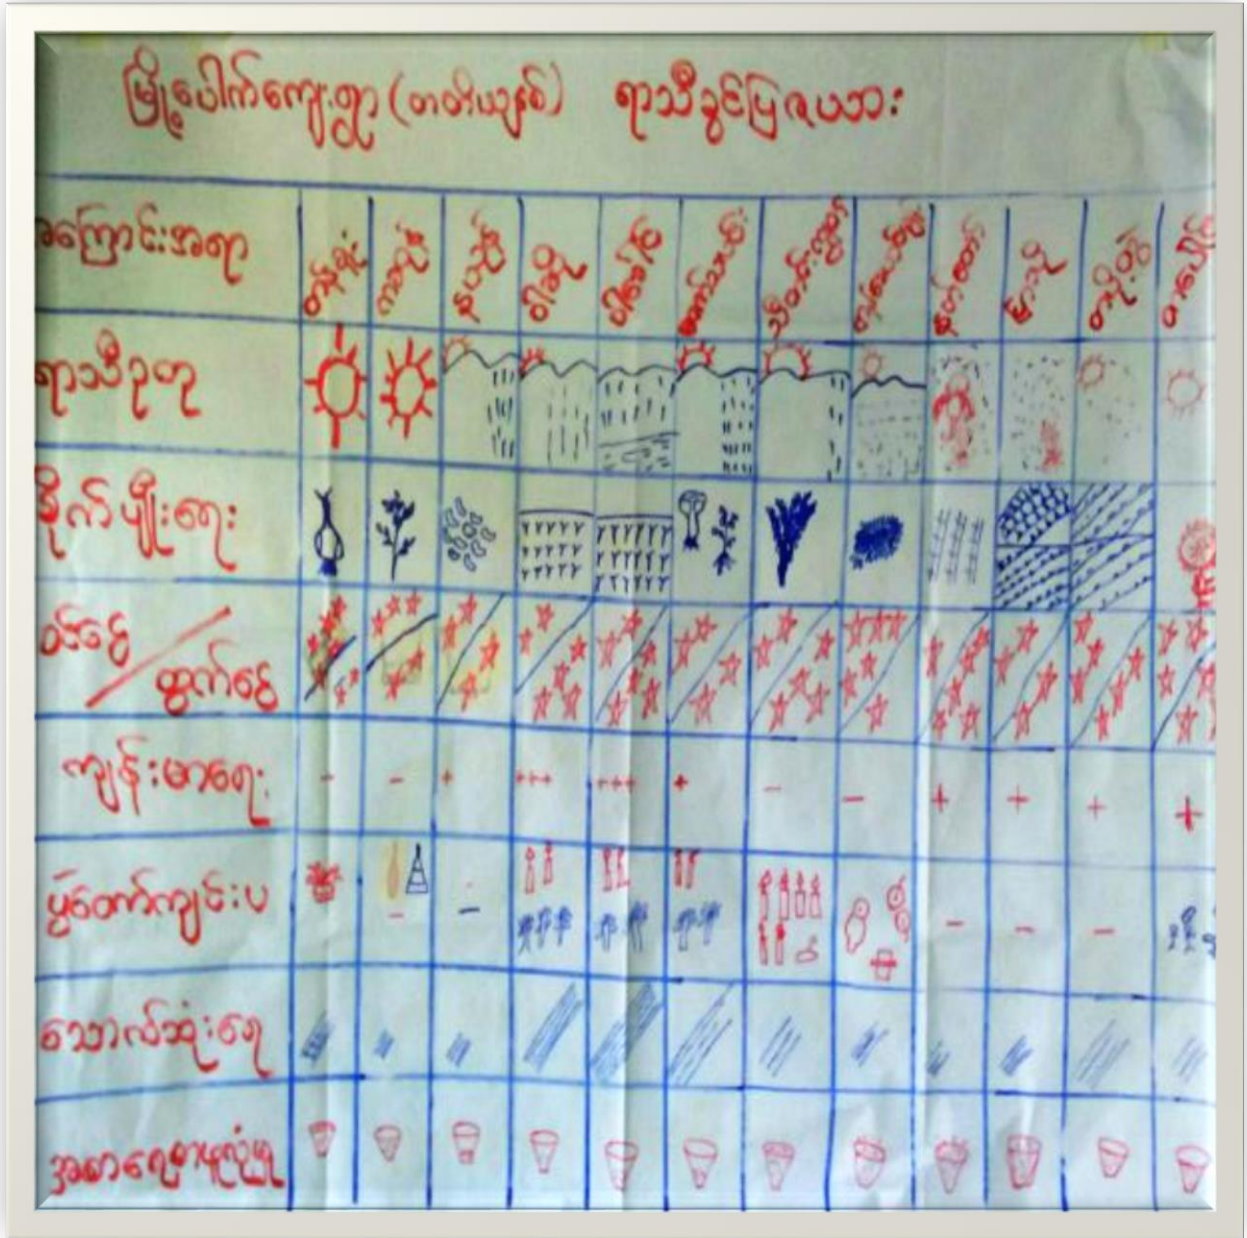 မြို့ပေါက်ကျေးရွာ (တတိယနှစ်) ရာသီခွင်ပြဇယား
အကြောင်းအရာ တန်ခူး ကဆုန် နယုန် ဝါဆို ဝါခေါင် တော်သလင်း သီတင်းကျွတ် တန်ဆောင်မုန်း နတ်တော် ပြာသို တပို့တွဲ တပေါင်း
ရာသီဥတု
စိုက်ပျိုးရေး
ဝင်ငွေ
ထွက်ငွေ
ကျန်းမာရေး - - + +++ +++ + - - + + + +
ပွဲတော်ကျင်းပ - - - - -
သောက်သုံးရေ
အစာရေစာဖူလုံမှု